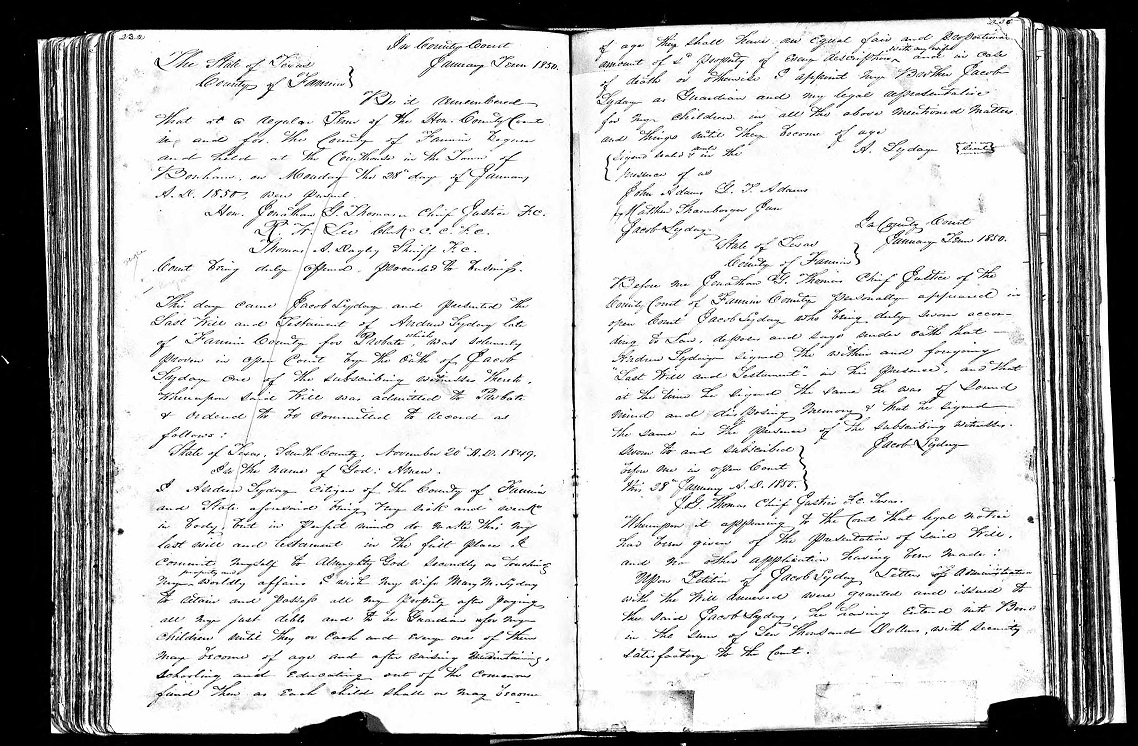 232
In County Court
The State of Texas January Term 1850.
County of Fannin }
Be it remembered
that at a regular Term of the Hon. County Court
in and for the County of Fannin begun
and held at the Courthouse in the Town of
Bonham, on Monday the 28th day of January
A.D. 1850, were present
Hon. Jonathan G. Thomas Chief Justice F.C.
R. W. Lee Clk C.C.F.C.
Thomas A. Dagley Shiff F.C.
Court being duly opened. proceeded to business.
This day came Jacob Lyday and presented the
Last Will and Testament of Andrew Lyday late
of Fannin County for Probate which was solemnly
proven in open Court by the Oath of Jacob
Lyday one of the subscribing witnesses thereto.
Whereupon said Will was admitted to Probate
& ordered to be committed to record as
follows:
State of Texas, County. November 20th A.D. 1849.
In the name of God. Amen.
I Andrew Lyday citizen of the County of Fannin
and State aforesaid being very sick and weak
in body, but in perfect mind do make this my
last will and testament in the first place I
commit myself to Almighty God secondly as touching
my property and worldly affairs I wish my wife Mary M. Lyday
to retain and possess all my property after paying
all my just debts and to be Guardian of my
children until they or each and every one of them
may become of age and after raising maintaining,
schooling and educating out of the common
fund them as each child shall or may become
of age they shall have an equal fair and proportionate
amount of sd property of every description with my wife and in case
of death or otherwise I appoint my Brother Jacob
Lyday as Guardian and my legal representative
for my children in all the above mentioned matters
and things until they become of age
Signed sealed & in the A. Lyday {Seal}
presence of us
John Adams G. T. Adams
Jacob Lyday In County Court
State of Texas January Term 1850.
County of Fannin }
Before me Jonathan G. Thomas Chief Justice of the
County Court of Fannin County personally appeared in
open Court Jacob Lyday who being duly sworn accor-
ding to Law, deposes and says under oath that
Andrew Lyday signed the within and foregoing
"Last Will and Testament" in his presence, and that
at the time he signed the same he was of sound
mind and disposing memory & that he signed
the same in the presence of the subscribing witnesses.
Sworn to and subscribed } Jacob Lyday
before me in open Court
this 28th January A.D. 1850.
J.G. Thomas Chief Justice F.C. Texas.
Whereupon it appearing to the Court that legal notice
had been given of the presentation of said Will,
and no other application having been made:
Upon Petition of Jacob Lyday Letters of Administration
with the Will annexed were granted and issued to
the said Jacob Lyday, he having entered into Bond
in the sum of Ten Thousand Dollars, with security
satisfactory to the Court.